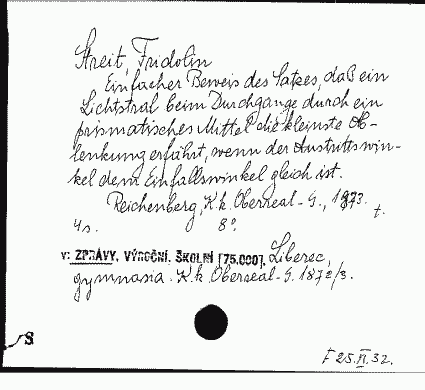 Streit, Fridolin
Einfacher Beweis des Satzes, daß ein
Lichtstral beim Durchgange durch ein
prismatisches Mittel die kleinste Ab-
lenkung erfährt, wenn der Austrittswin-
kel dem Einfallswinkel gleich ist.
Reichenberg, K.k. Oberreal-G., 1873. t.
4 s. 8°.
v: ZPRÁVY, VÝROČNÍ, ŠKOLNÍ [75,000], Liberec,
gymnasia. K.k. Oberreal-G. 1872/3.
S
F 25.VI.32.